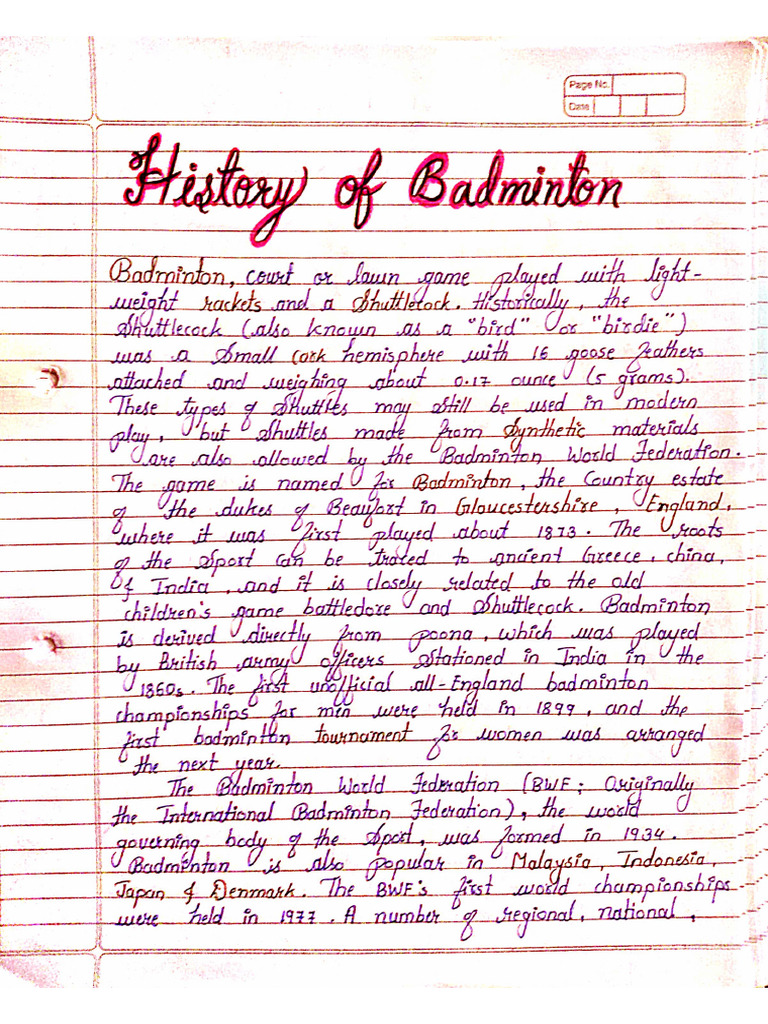 Page No.
Date
History of Badminton
Badminton, court or lawn game played with light-
weight rackets and a Shuttlecock. Historically, the
Shuttlecock (also known as a "bird" or "birdie")
was a Small cork hemisphere with 16 goose feathers
attached and weighing about 0.17 ounce (5 grams).
These types of Shuttles may still be used in modern
play, but Shuttles made from Synthetic materials
are also allowed by the Badminton World Federation.
The game is named for Badminton, the Country estate
of the dukes of Beaufort in Gloucestershire, England,
where it was first played about 1873. The roots
of the Sport can be traced to ancient Greece, china,
& India, and it is closely related to the old
children's game battledore and Shuttlecock. Badminton
is derived directly from poona, which was played
by British army officers Stationed in India in the
1860s. The first unofficial all-England badminton
championships for men were held in 1899, and the
first badminton tournament for women was arranged
the next year.
The Badminton World Federation (BWF; Originally
the International Badminton Federation), the world
governing body of the Sport, was formed in 1934.
Badminton is also popular in Malaysia, Indonesia,
Japan & Denmark. The BWF's first world championships
were held in 1977. A number of regional, national,